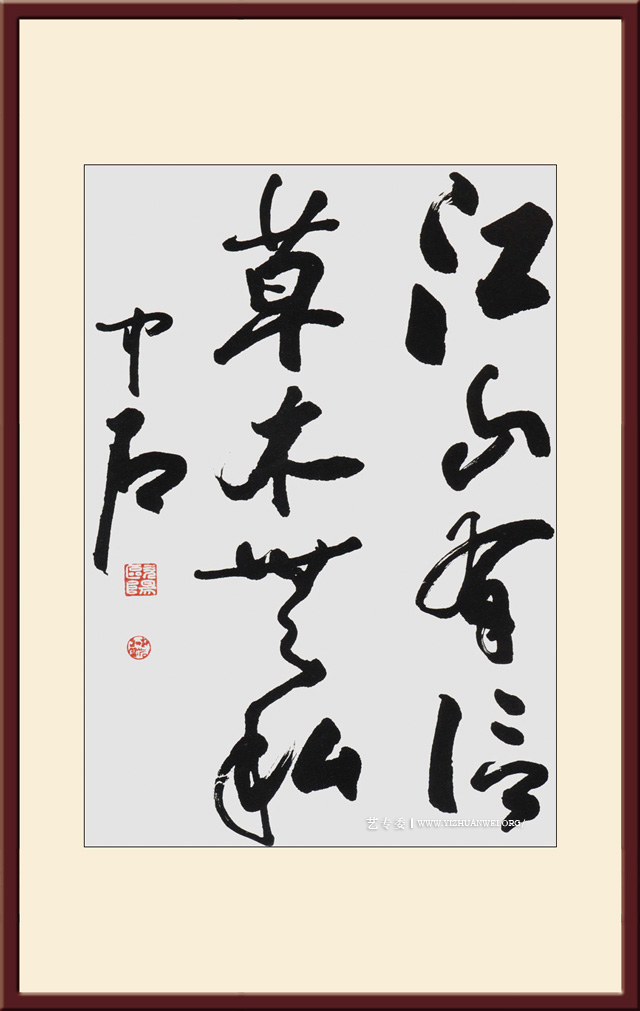 江山有信
草木無私
中石
艺专委 | WWW.YIZHUANWEI.ORG/